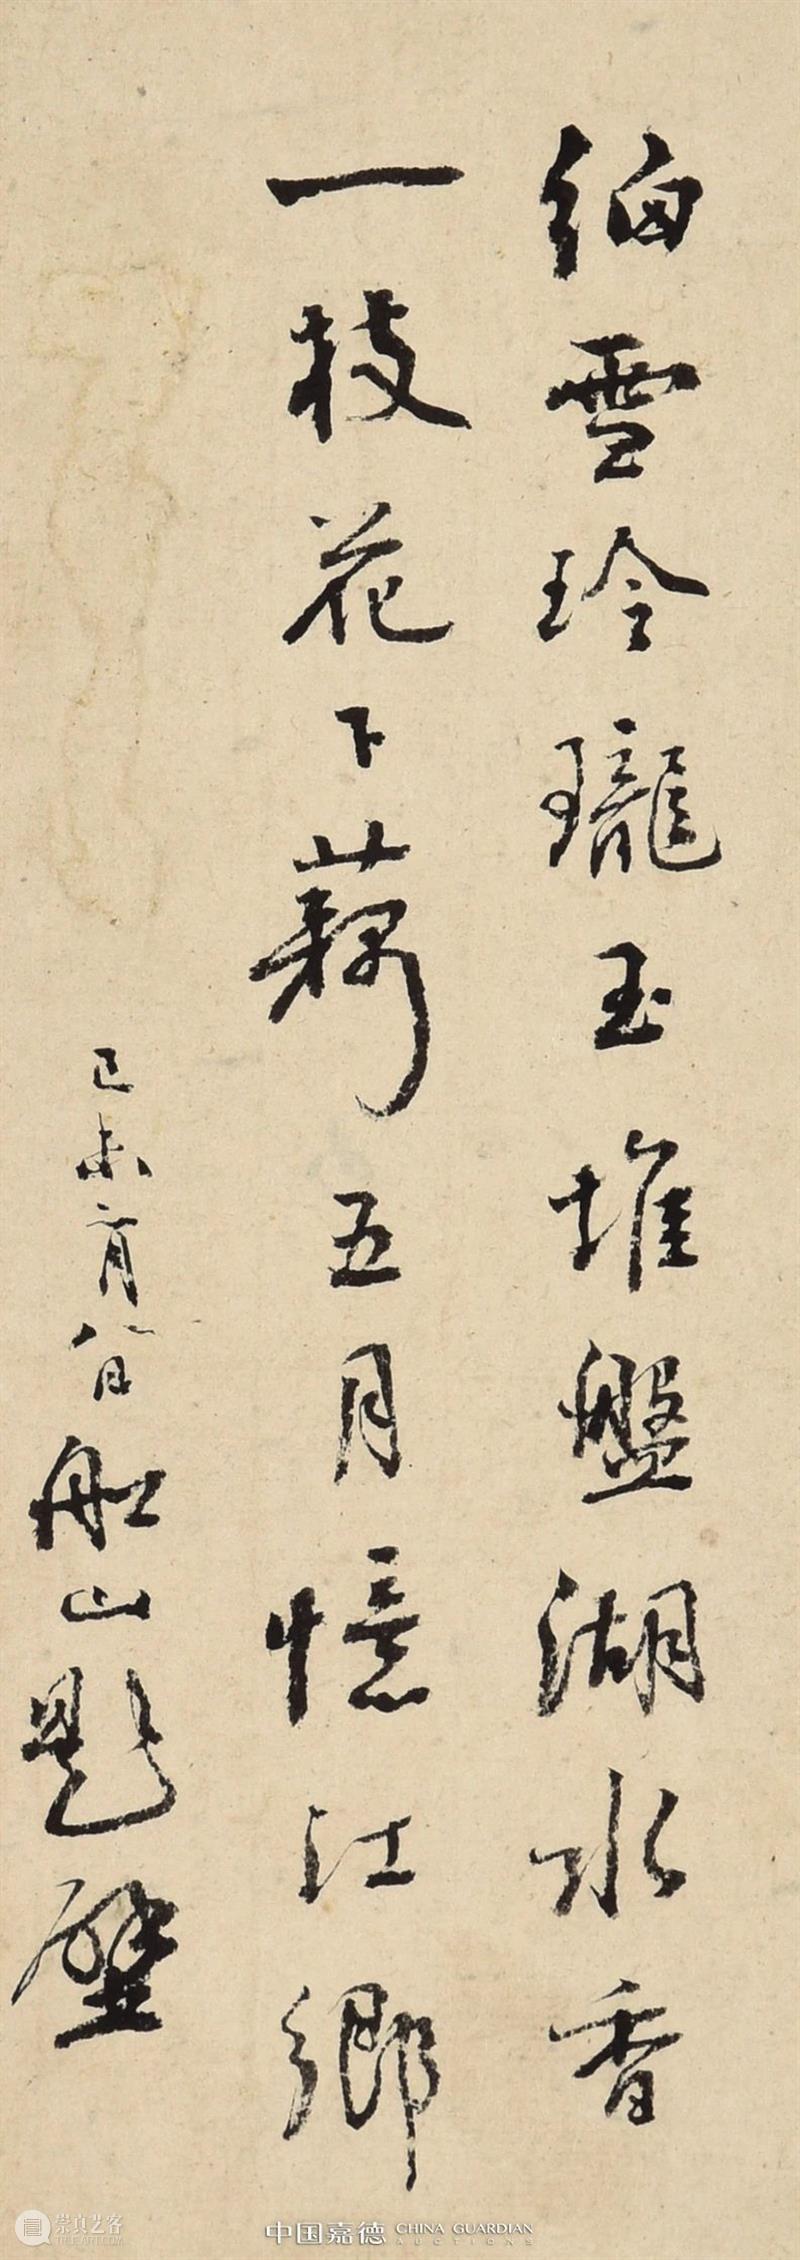 細雪玲瓏玉堆盤湖水香
一枝花下藕五月憶江鄉
己未六月八日船山題壁
中国嘉德 CHINA GUARDIAN
AUCTIONS
崇真艺客